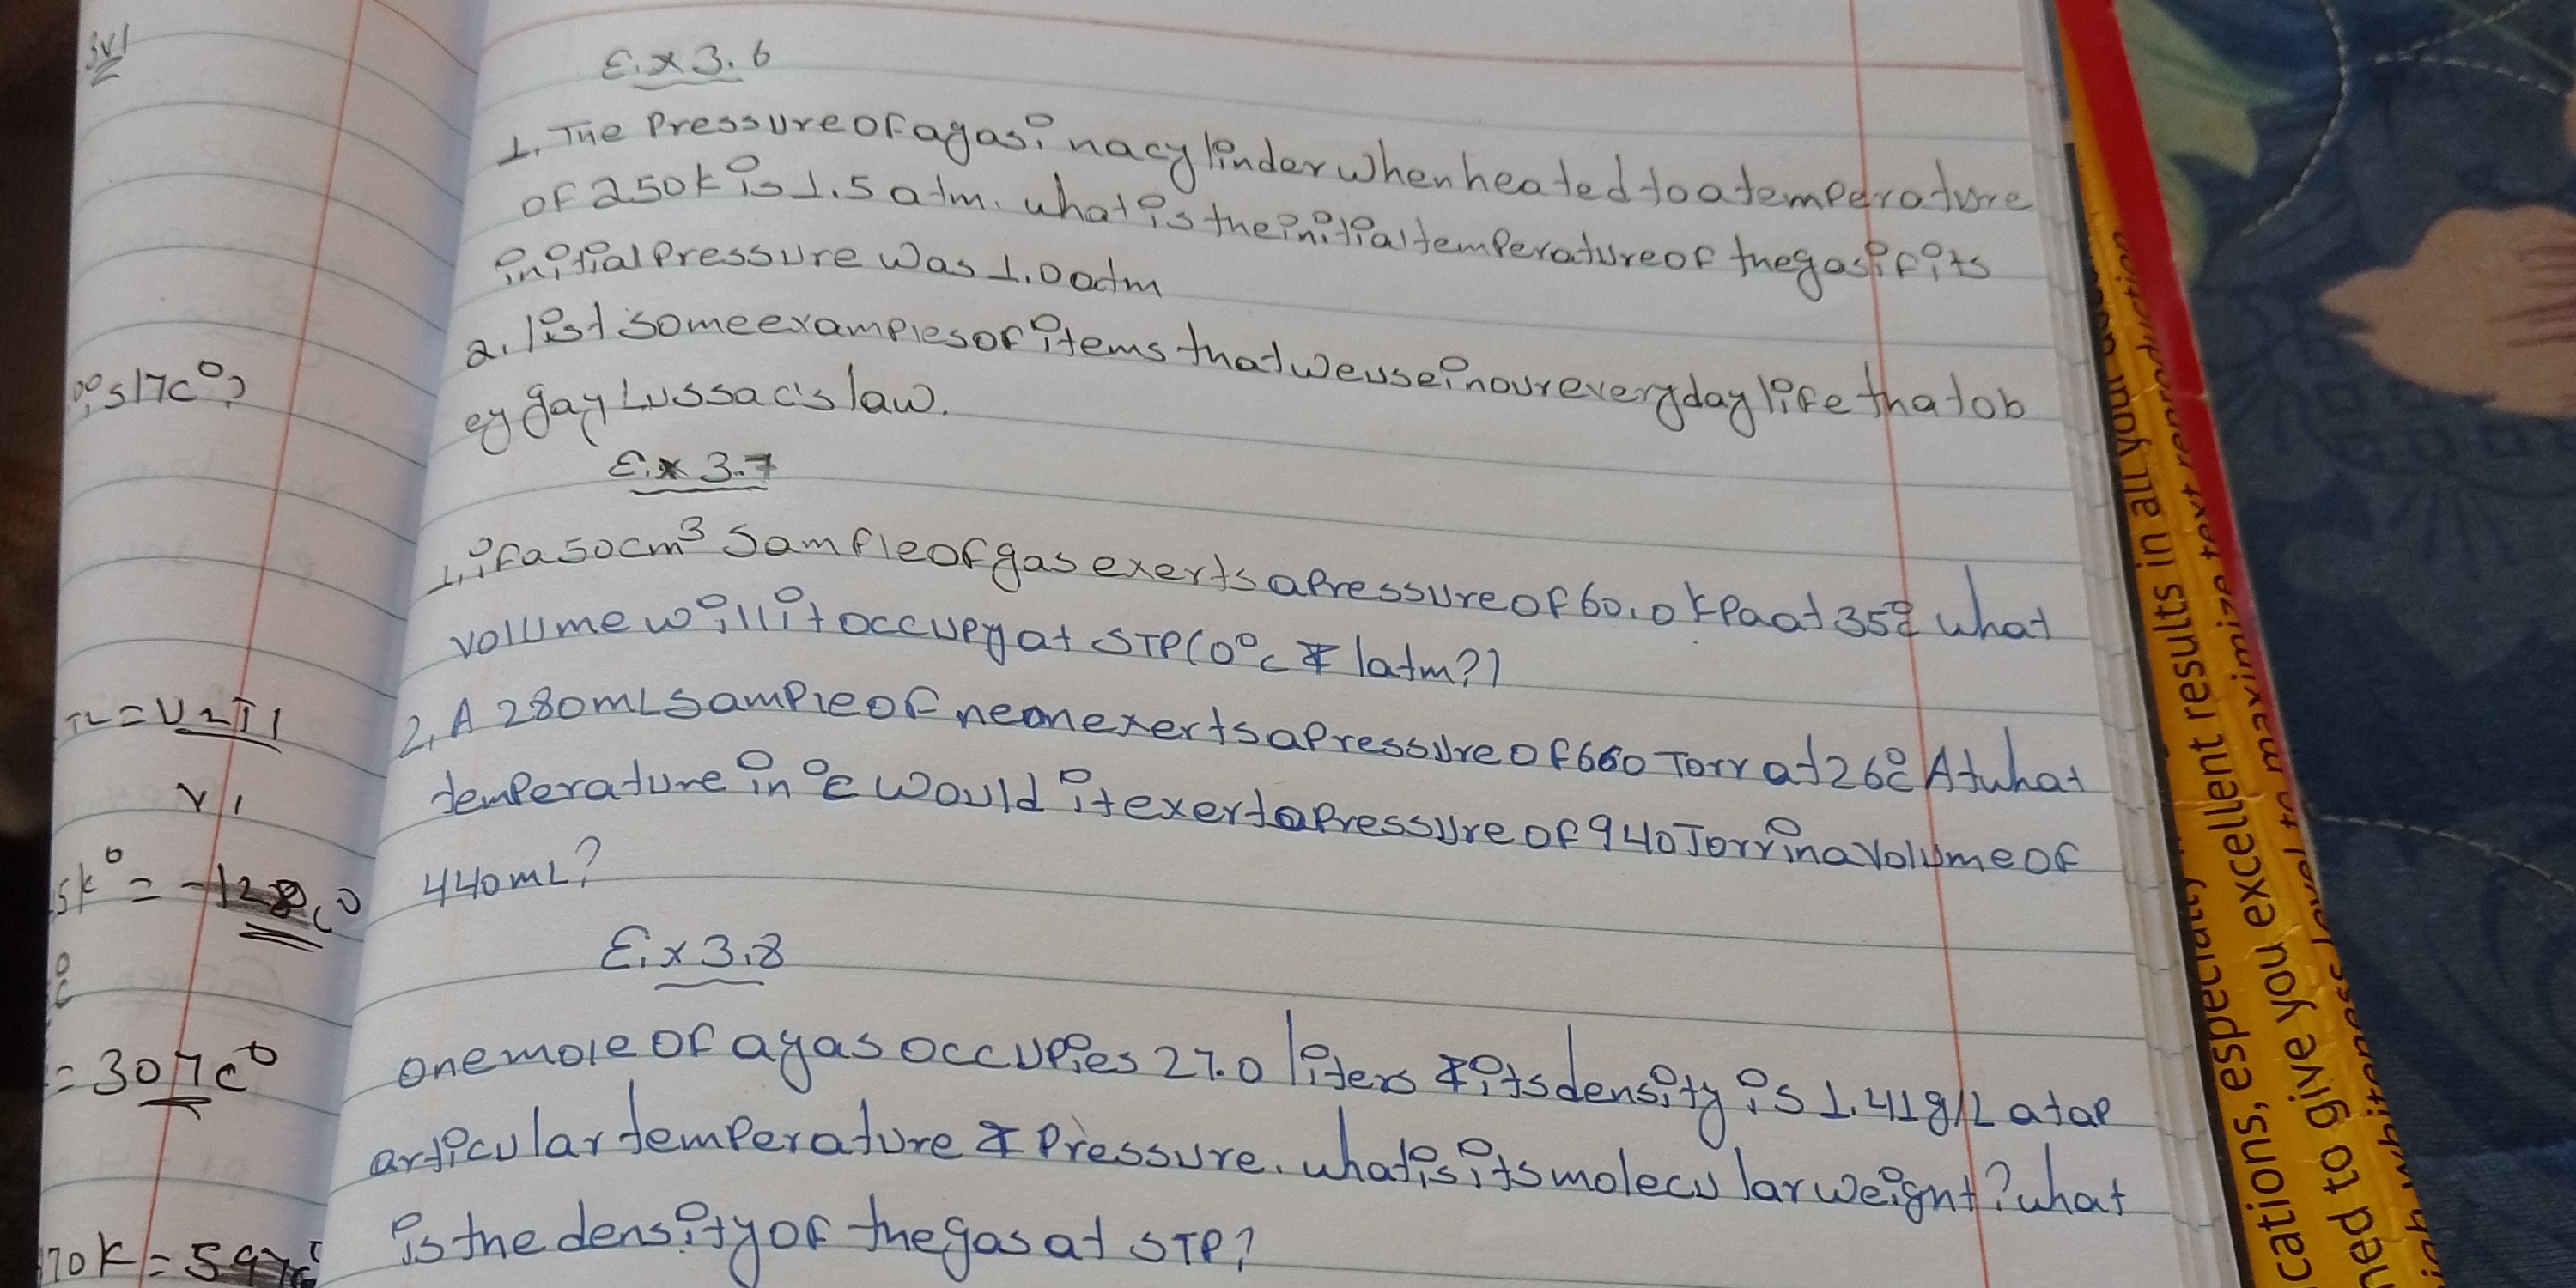 E.x 3.6
1. The Pressure of a gas in a cylinder when heated to a temperature
of 250k is 1.5 atm. what is the initial temperature of the gas if its
initial Pressure was 1.0 atm
2. list some examples of items that we use in our everyday life that ob
ey gay Lussac's law.
E.x 3.7
1. if a 50cm³ Sample of gas exerts a Pressure of 60.0 kPa at 35°c what
volume will it occupy at STP (0°c & 1atm?)
2, A 280mL Sample of neon exerts a Pressure of 660 Torr at 26°c At what
temperature in °c would it exert a Pressure of 940 Torr in a Volume of
440mL?
E.x 3.8
one mole of a gas occupies 27.0 liters & its density is 1.41g/L at a p
articular temperature & Pressure. what is its molecular weight? what
is the density of the gas at STP?
is 17c°?
T2 = V2T1
V1
5k° = -128c°
= 307c°
70k = 597c°
results in all your
cations, especially
ned to give you excellent
to maximize text reproduction